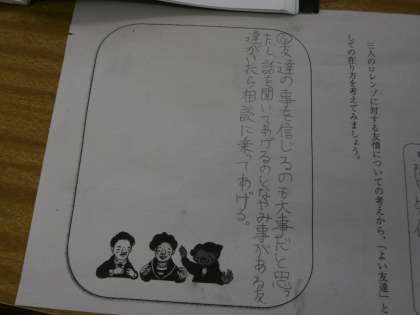 三人のロレンゾに対する友情についての考えから、「よい友達」と
しての在り方を考えてみましょう。
友達の事を信じるのも大事だと思っ
たら話を聞いてあげるのとなやみ事がある友
達がいたら相談に乗ってあげる。